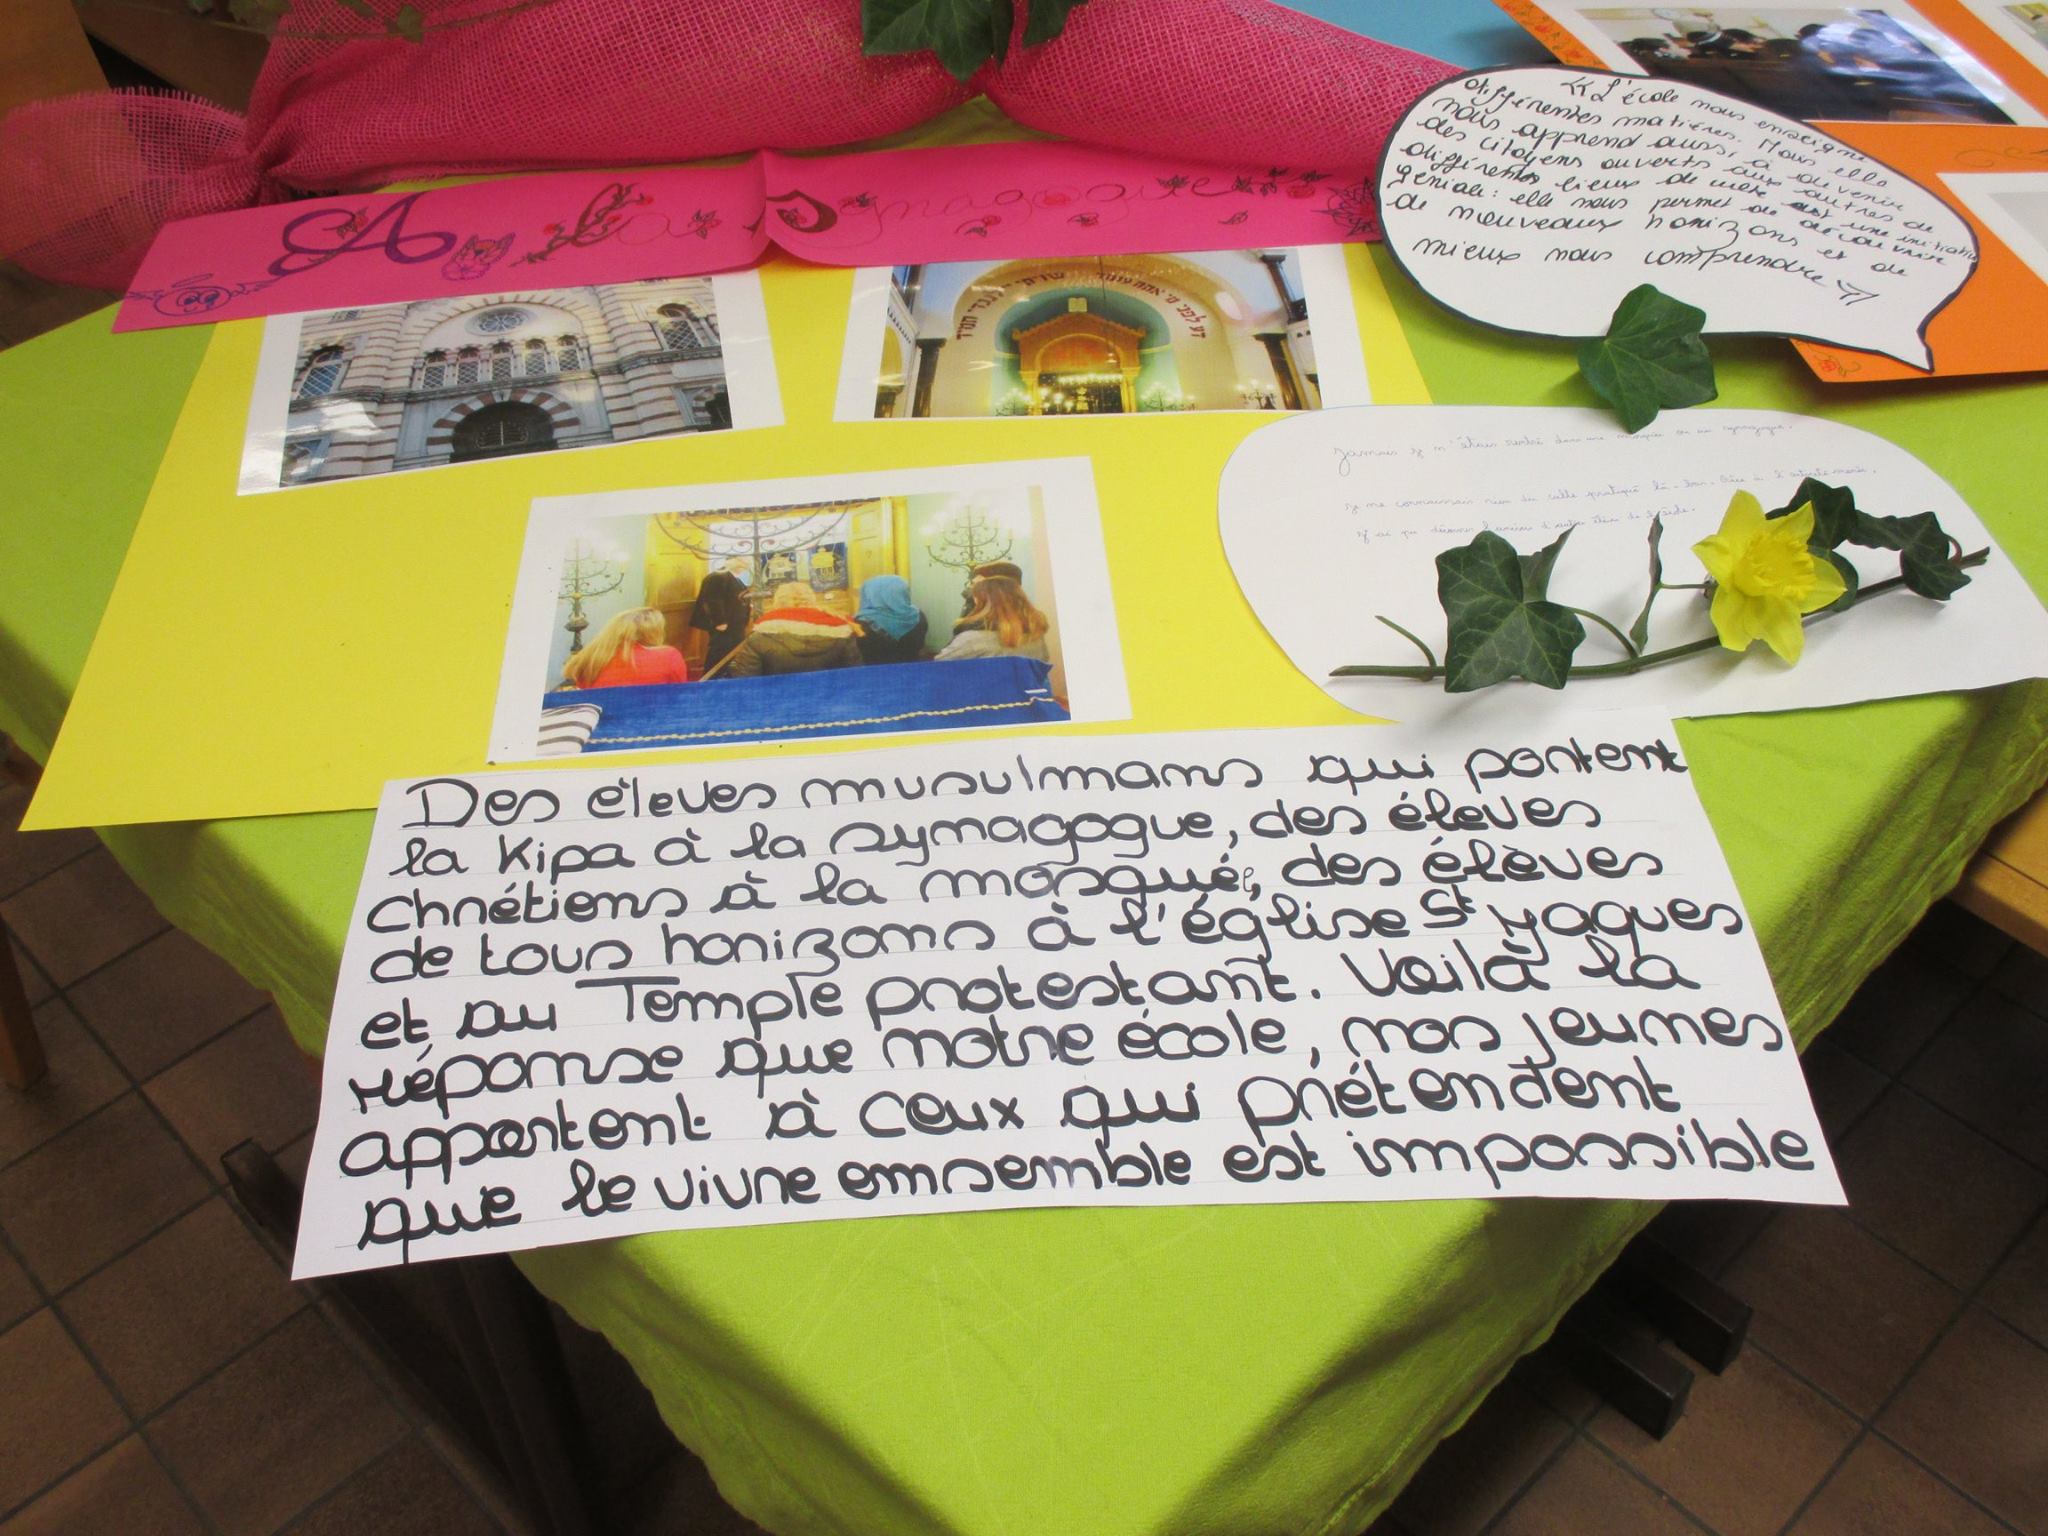 A la Synagogue
« L'école nous enseigne
différentes matières. Mais elle
nous apprend aussi, à devenir
des citoyens ouverts aux autres
différents lieux de culte est une initiative
géniale : elle nous permet de découvrir
de nouveaux horizons et de
mieux nous comprendre »
Jamais je n'étais rentré dans une mosquée ou une synagogue.
je ne connaissais rien du culte pratiqué là-bas. Grâce à
j'ai pu découvrir
Des élèves musulmans qui portent
la Kipa à la synagogue, des élèves
chrétiens à la mosquée, des élèves
de tous horizons à l'église St Jaques
et au Temple protestant. Voilà la
réponse que notre école, nos jeunes
apportent à ceux qui prétendent
que le vivre ensemble est impossible